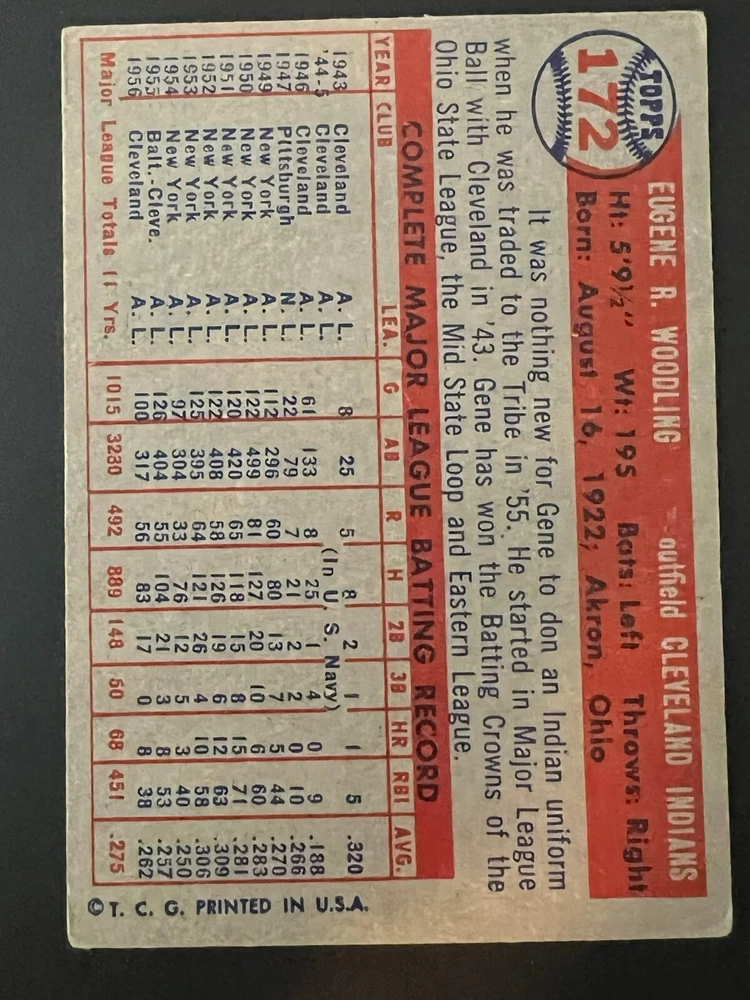 TOPPS
172
EUGENE R. WOODLING outfield CLEVELAND INDIANS
Ht: 5'9½" Wt: 195 Bats: Left Throws: Right
Born: August 16, 1922; Akron, Ohio
It was nothing new for Gene to don an Indian uniform
when he was traded to the Tribe in '55. He started in Major League
Ball with Cleveland in '43. Gene has won the Batting Crowns of the
Ohio State League, the Mid State Loop and Eastern League.
COMPLETE MAJOR LEAGUE BATTING RECORD
YEAR CLUB LEA. G AB R H 2B 3B HR RBI AVG.
1943 Cleveland A. L. 8 25 5 8 2 1 1 5 .320
'44-5 Cleveland A. L. (In U. S. Navy)
1946 Cleveland A. L. 61 133 8 25 1 4 0 9 .188
1947 Pittsburgh N. L. 22 79 7 21 2 2 0 10 .266
1949 New York A. L. 112 296 60 80 13 7 5 44 .270
1950 New York A. L. 122 499 81 127 20 10 6 60 .283
1951 New York A. L. 120 420 65 118 15 8 15 71 .281
1952 New York A. L. 122 408 58 126 19 6 12 63 .309
1953 New York A. L. 125 395 64 121 26 4 10 58 .306
1954 New York A. L. 97 304 33 76 12 5 3 40 .250
1955 Balt.-Cleve. A. L. 126 404 55 104 21 3 8 53 .257
1956 Cleveland A. L. 100 317 56 83 17 0 8 38 .262
Major League Totals 11 Yrs. 1015 3280 492 889 148 50 68 451 .275
© T. C. G. PRINTED IN U.S.A.